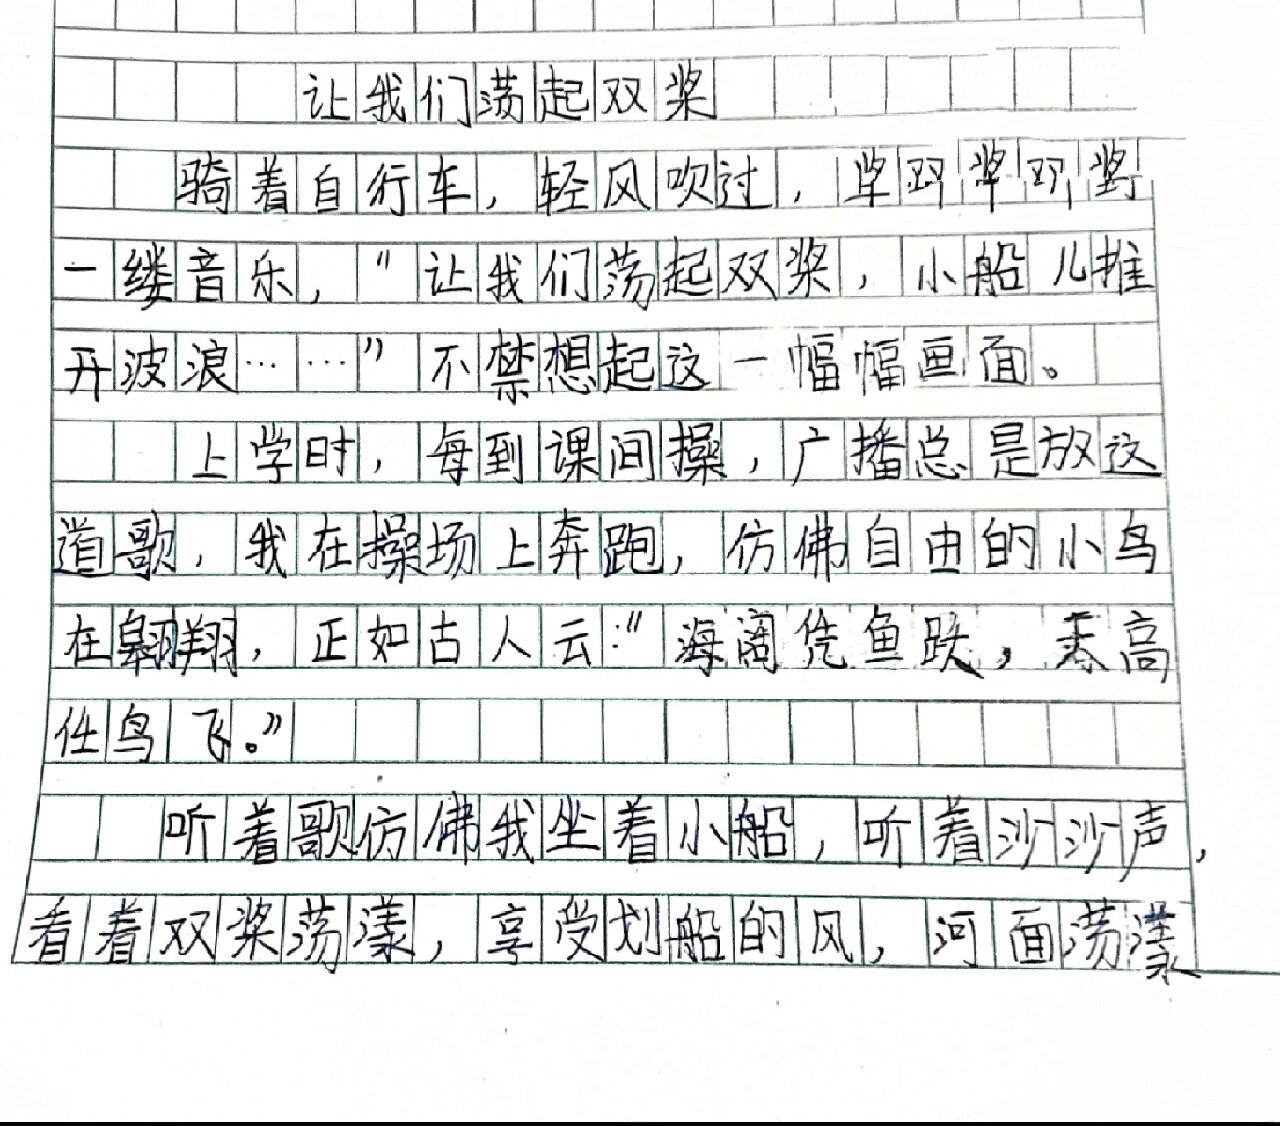 让我们荡起双桨
骑着自行车，轻风吹过，
一缕音乐，“让我们荡起双桨，小船儿推
开波浪……”不禁想起这一幅幅画面。
上学时，每到课间操，广播总是放这
道歌，我在操场上奔跑，仿佛自由的小鸟
在翱翔，正如古人云：“海阔凭鱼跃，天高
任鸟飞。”
听着歌仿佛我坐着小船，听着沙沙声，
看着双桨荡漾，享受划船的风，河面荡漾